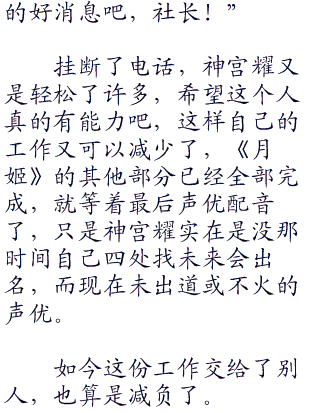 的好消息吧，社长！”
挂断了电话，神宫耀又
是轻松了许多，希望这个人
真的有能力吧，这样自己的
工作又可以减少了，《月
姬》的其他部分已经全部完
成，就等着最后声优配音
了，只是神宫耀实在是没那
时间自己四处找未来会出
名，而现在未出道或不火的
声优。
如今这份工作交给了别
人，也算是减负了。